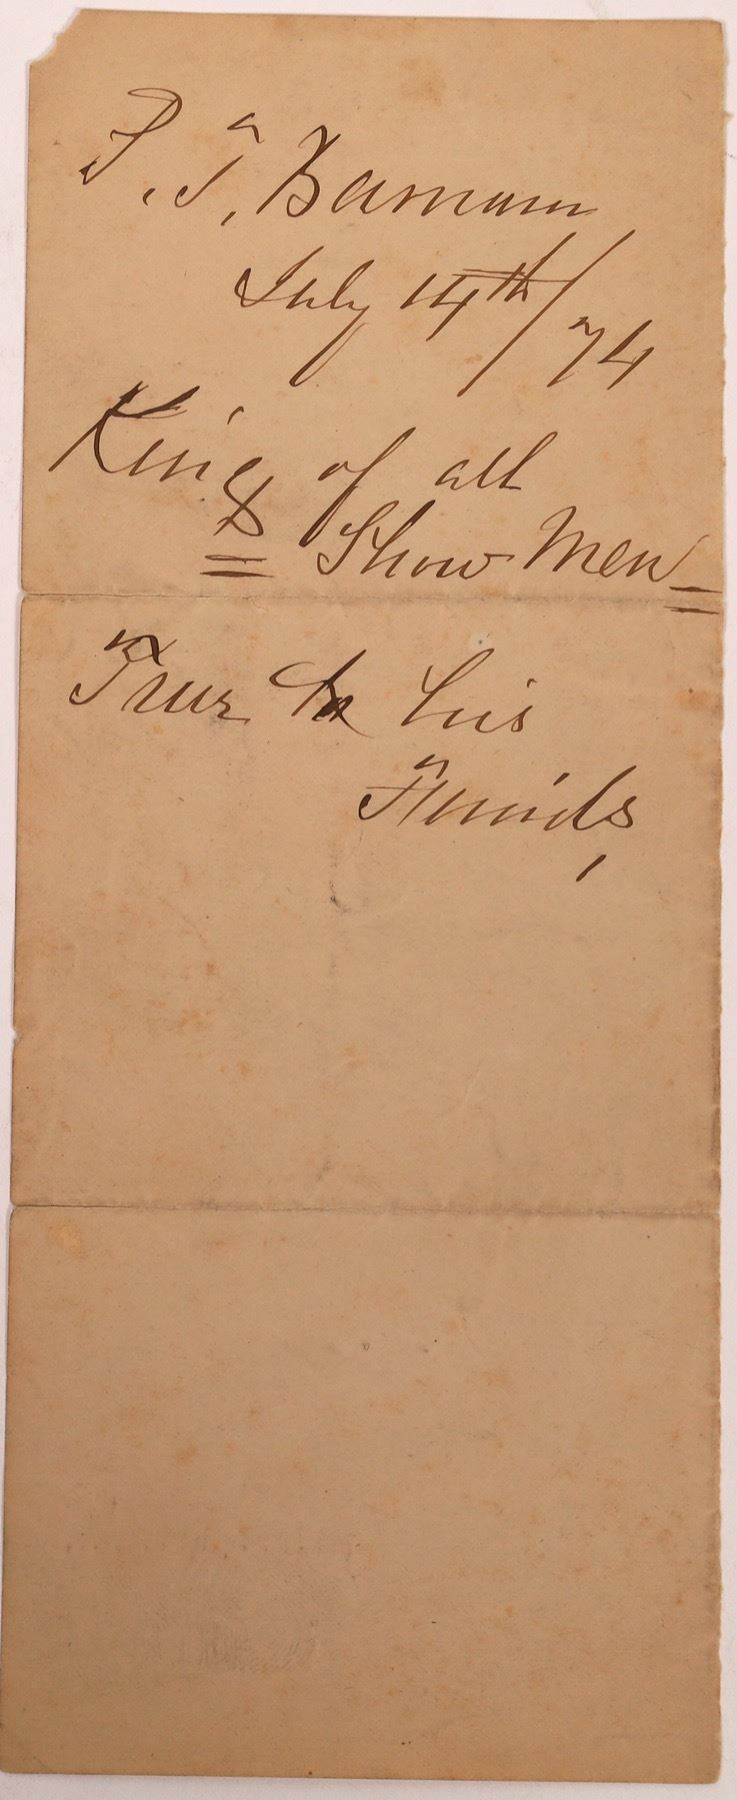 P. T. Barnum
July 14th/74
King of all
Show Men
True to his
Friends,